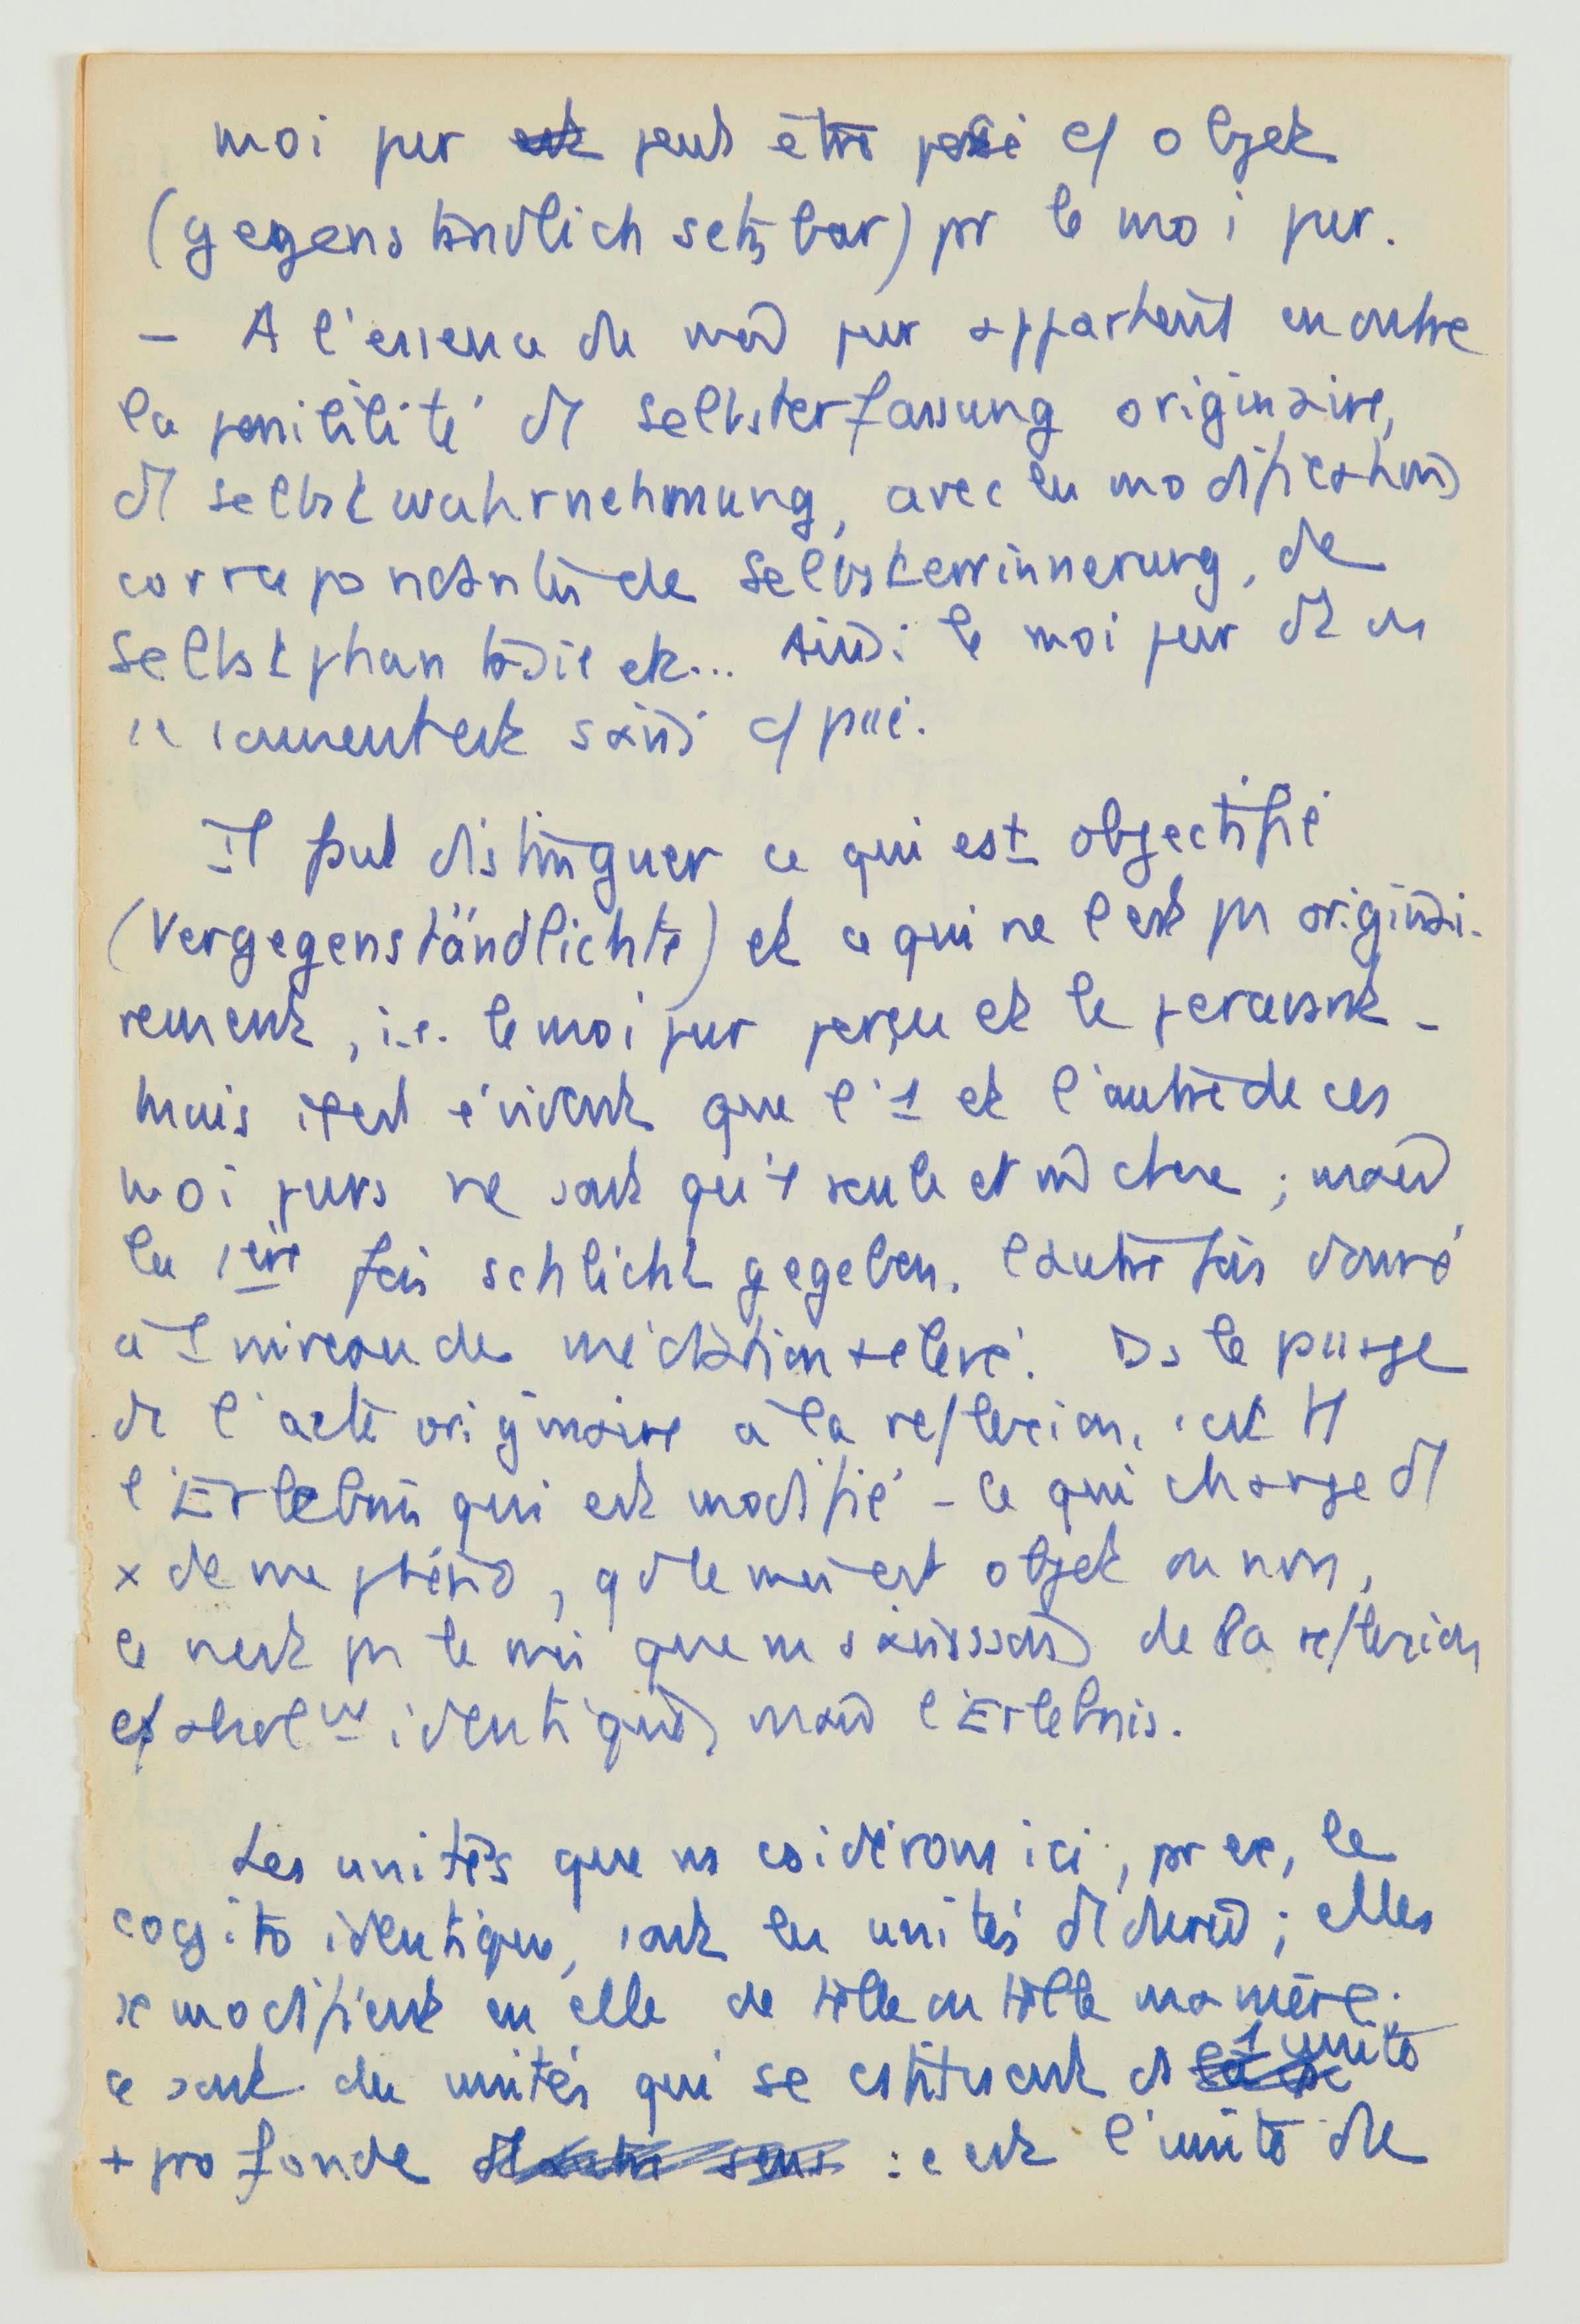 moi pur peut être posé c/ objet
(gegenständlich setzbar) pr le moi pur.
– A l'essence du moi pur appartient en outre
la possibilité de Selbsterfassung originaire,
de Selbstwahrnehmung, avec les modifications
correspondantes de Selbsterinnerung, de
Selbstphantasie etc... Ainsi le moi pur
saisi c/ passé.
Il faut distinguer ce qui est objectifié
(Vergegenständlichte) et ce qui ne l'est pas originai-
rement, i.e. le moi pur perçu et le percevant –
mais il est évident que l'1 et l'autre de ces
moi purs ne sont qu'1 seule et m̂ chose ; mais
la 1ère fois schlicht gegeben, l'autre fois donné
à 1 niveau de médiation + élevé. Ds le passage
de l'acte originaire à la reflexion, c'est tt
l'Erlebnis qui est modifié – ce qui change
de me phéno, qd le moi est objet ou non,
ce n'est pas le moi que ns saisissons de la reflexion
c/ absolut identique, mais l'Erlebnis.
Les unités que ns csidérons ici, pr ex, le
cogito identique, sont les unités de durée ; elles
se modifient en elle de telle ou telle manière :
ce sont des unités qui se cstituent ds 1 unité
+ profonde : c'est l'unité de